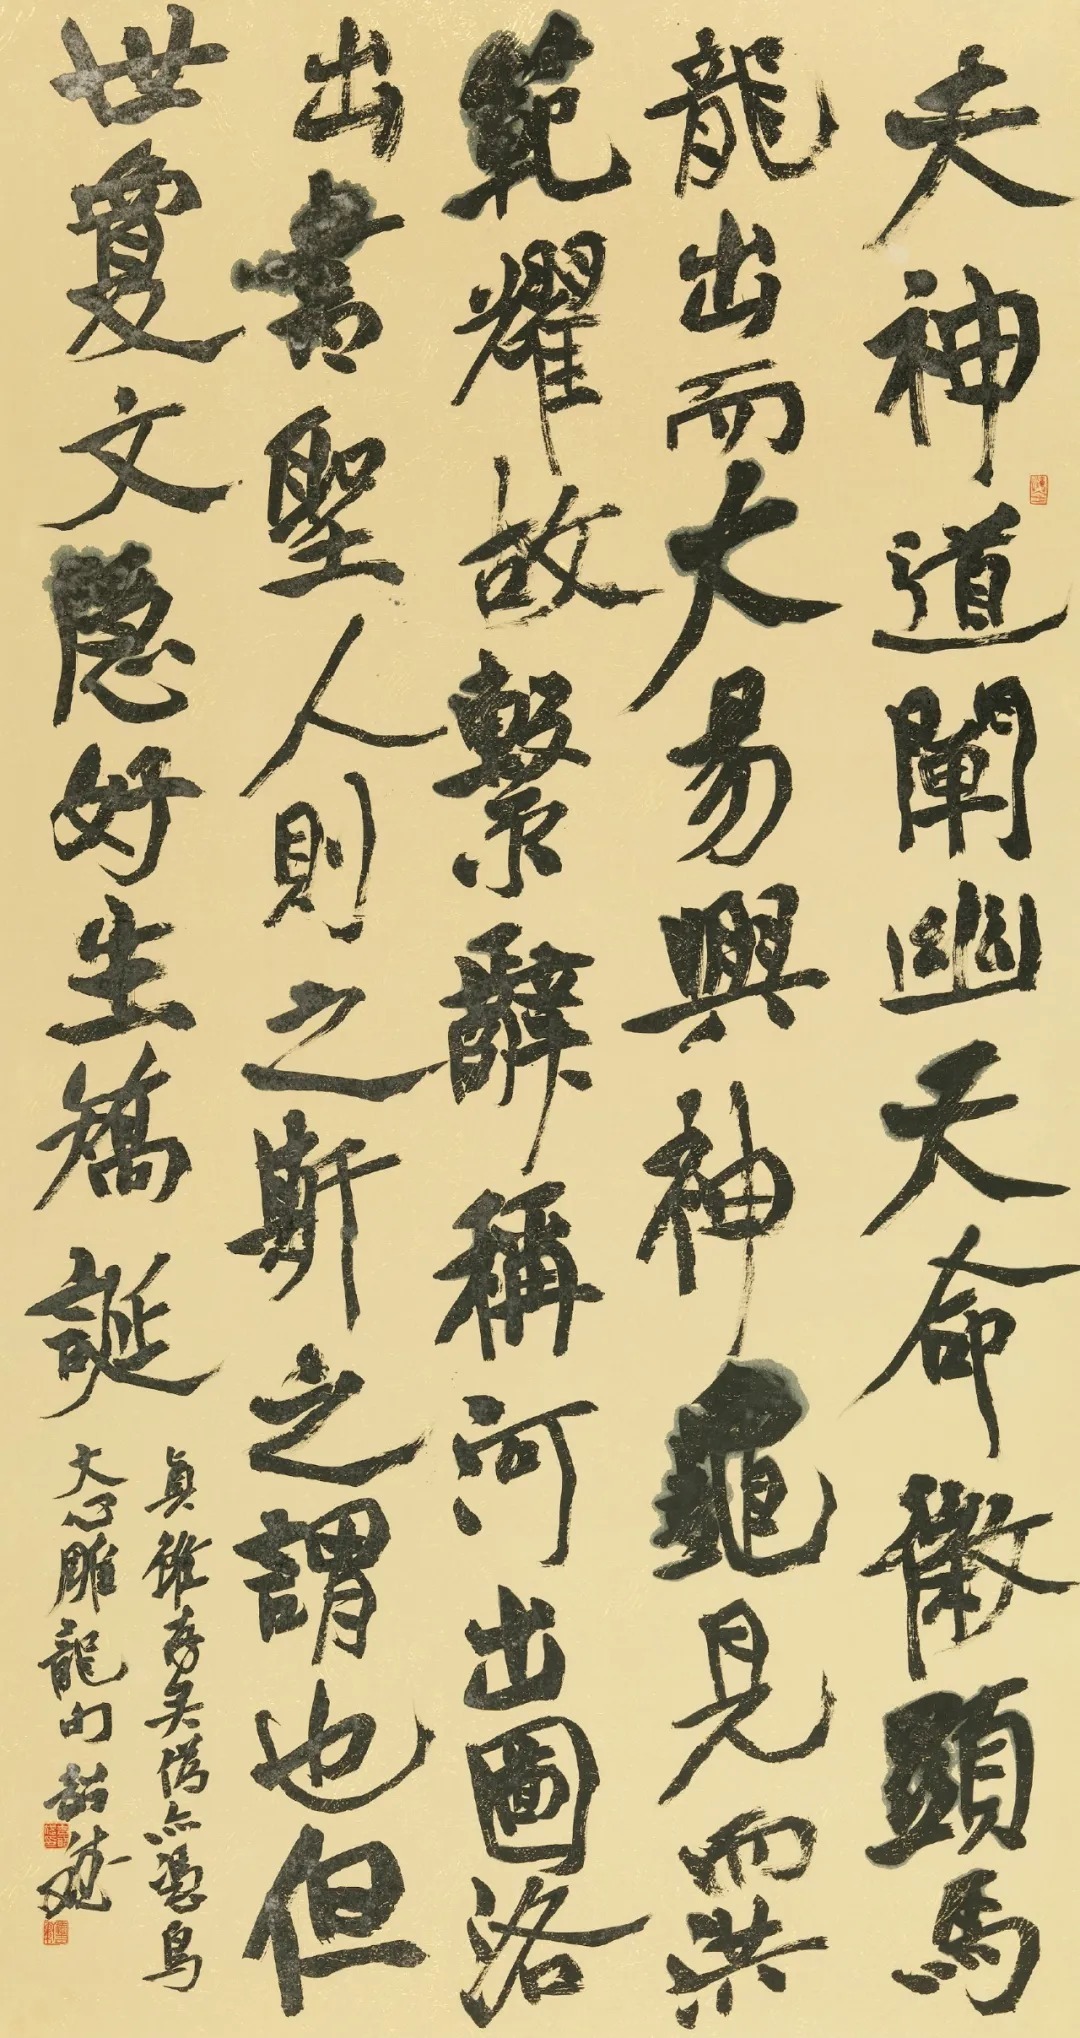 夫神道闡幽天命微顯馬
龍出而大易興神龜見而洪
範耀故繫辭稱河出圖洛
出書聖人則之斯之謂也但
世夐文隱好生矯誕
真雖存矣偽亦憑焉
文心雕龍句